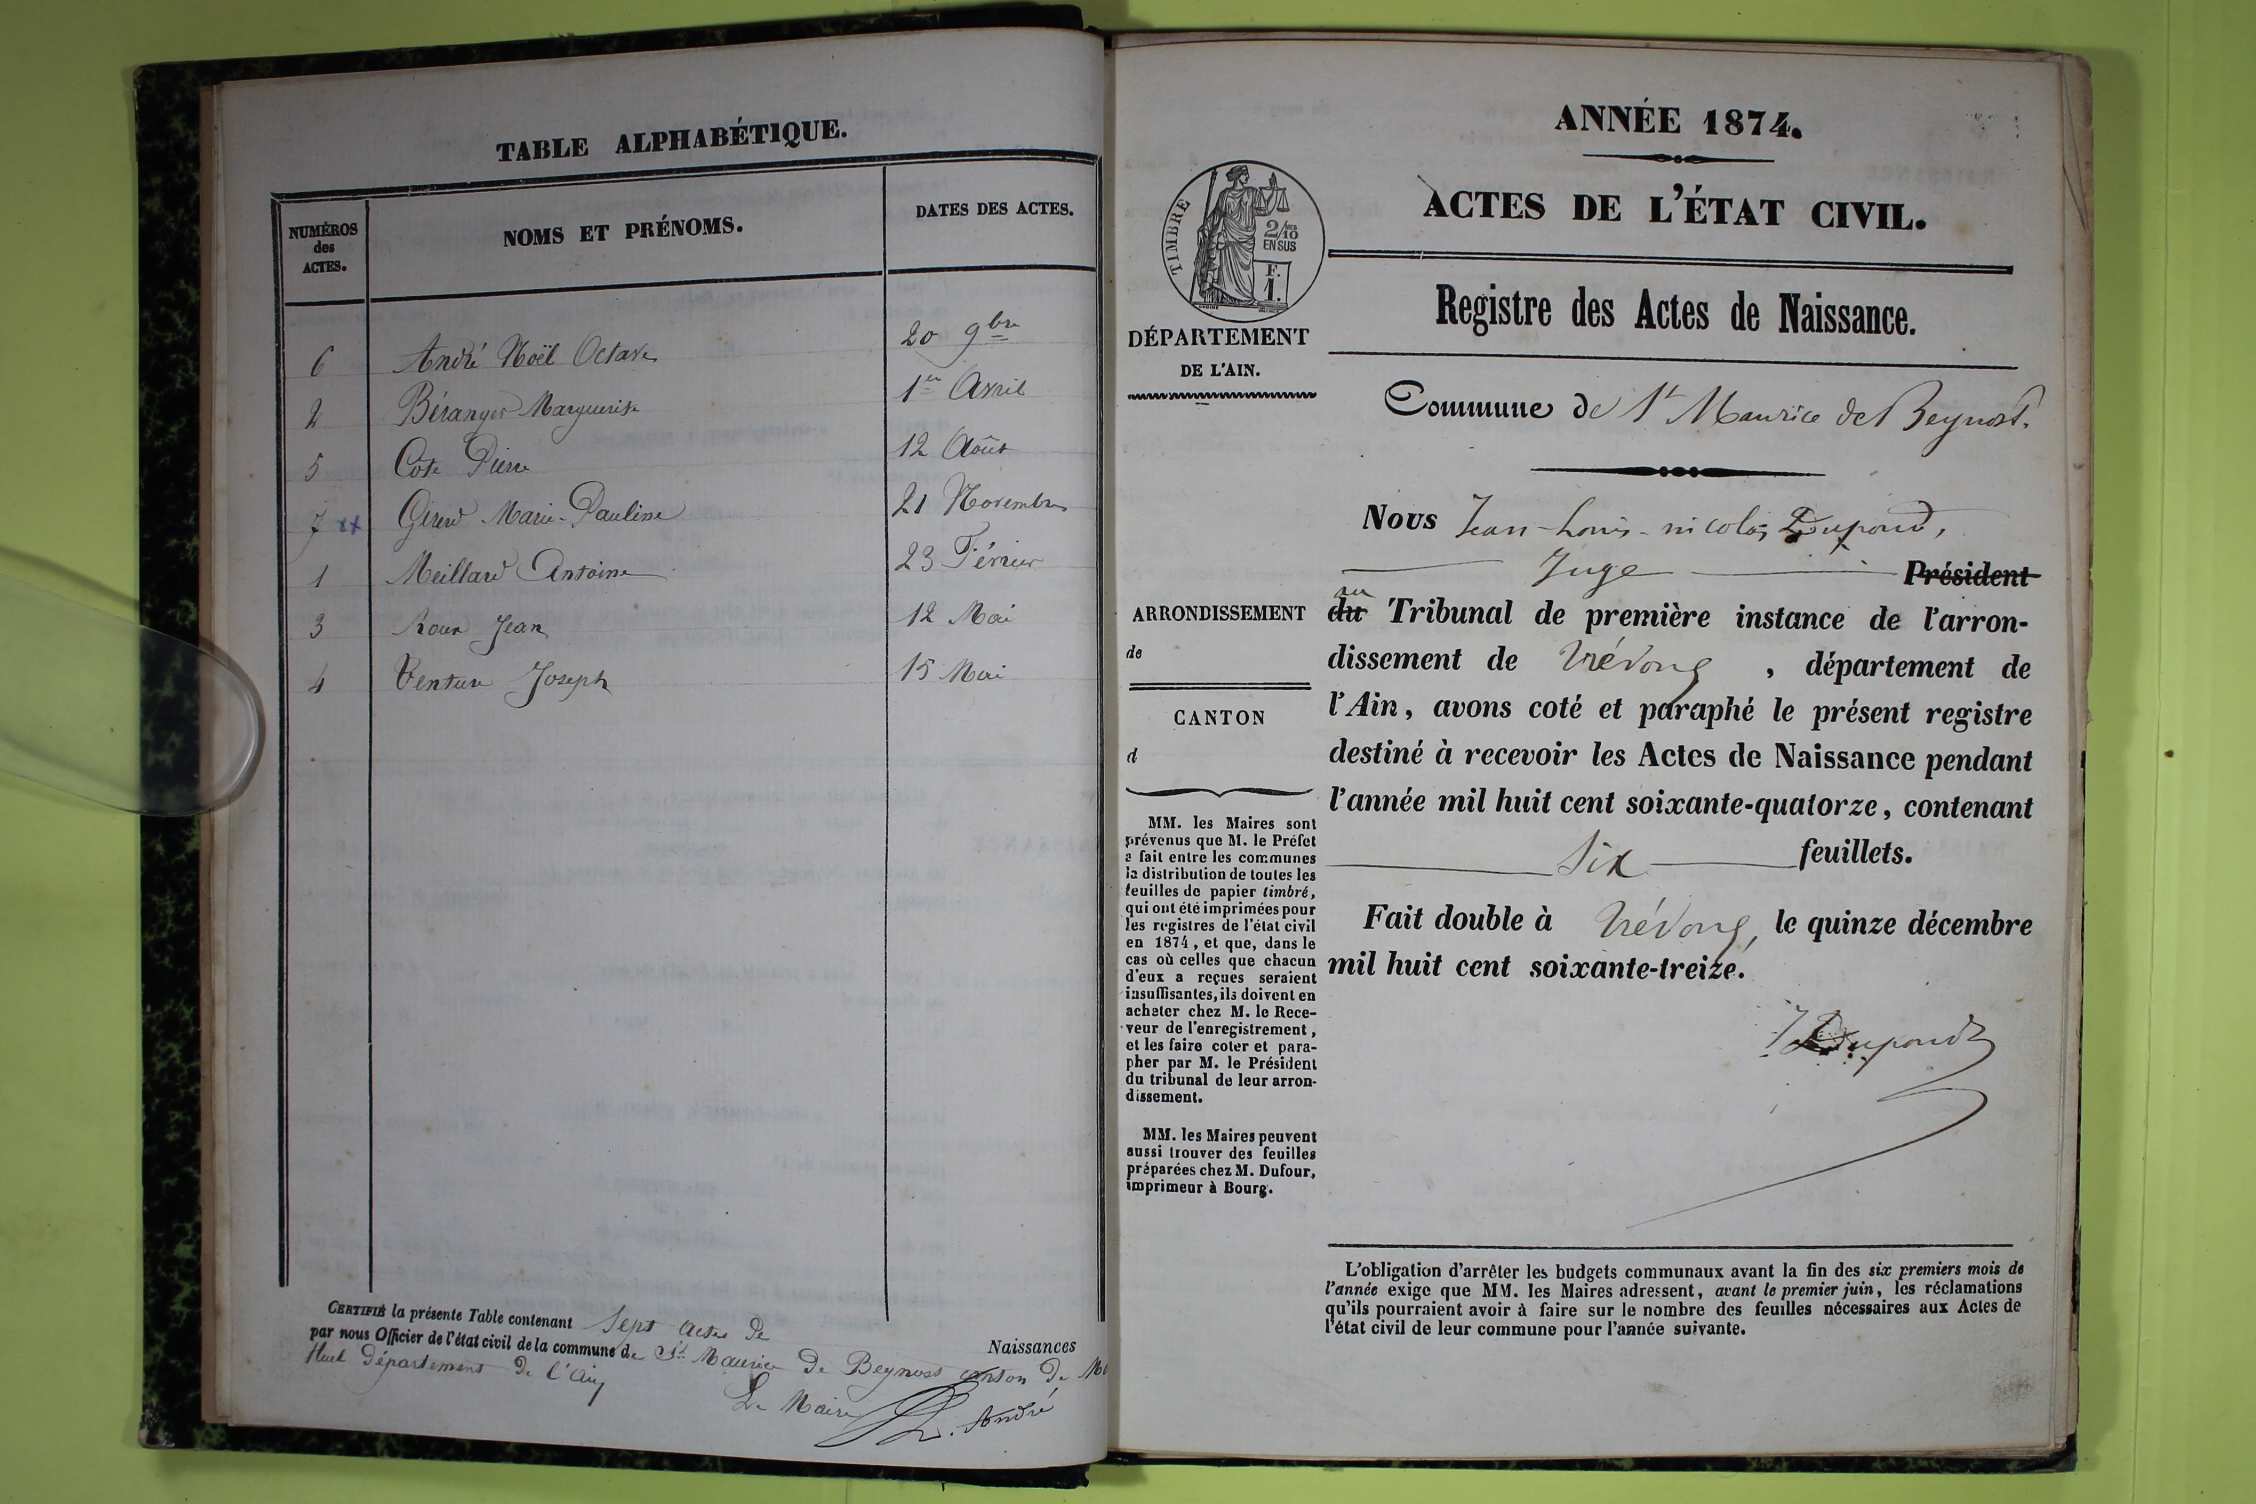 TABLE ALPHABÉTIQUE.
NUMÉROS des ACTES. NOMS ET PRÉNOMS. DATES DES ACTES.
6 André Noël Octave 20 9bre
2 Béranger Marguerite 1er Avril
5 Côte Pierre 12 Août
7 Girerd Marie-Pauline 21 Novembre
1 Meillard Antoine 23 Février
3 Roux Jean 12 Mai
4 Venture Joseph 15 Mai
CERTIFIÉ la présente Table contenant Sept actes de Naissances
par nous Officier de l'état civil de la commune de St Maurice de Beynost canton de Mont
luel département de l'Ain
Le Maire
L. André
ANNÉE 1874.
ACTES DE L'ÉTAT CIVIL.
TIMBRE
2/10
EN SUS
F.
1.
Registre des Actes de Naissance.
DÉPARTEMENT
DE L'AIN.
Commune de St Maurice de Beynost.
Nous Jean-Louis-nicolas Dupond,
Juge Président
ARRONDISSEMENT
de
CANTON
d
au
du Tribunal de première instance de l'arron-
dissement de Trévoux, département de
l'Ain, avons coté et paraphé le présent registre
destiné à recevoir les Actes de Naissance pendant
l'année mil huit cent soixante-quatorze, contenant
Six feuillets.
Fait double à Trévoux, le quinze décembre
mil huit cent soixante-treize.
JDupond
MM. les Maires sont
prévenus que M. le Préfet
a fait entre les communes
la distribution de toutes les
feuilles de papier timbré,
qui ont été imprimées pour
les registres de l'état civil
en 1874, et que, dans le
cas où celles que chacun
d'eux a reçues seraient
insuffisantes, ils doivent en
acheter chez M. le Rece-
veur de l'enregistrement,
et les faire coter et para-
pher par M. le Président
du tribunal de leur arron-
dissement.
MM. les Maires peuvent
aussi trouver des feuilles
préparées chez M. Dufour,
imprimeur à Bourg.
L'obligation d'arrêter les budgets communaux avant la fin des six premiers mois de
l'année exige que MM. les Maires adressent, avant le premier juin, les réclamations
qu'ils pourraient avoir à faire sur le nombre des feuilles nécessaires aux Actes de
l'état civil de leur commune pour l'année suivante.